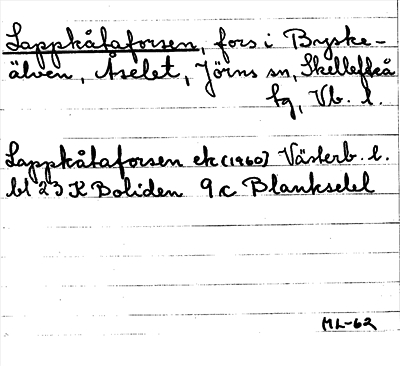 Lappkåtaforsen, fors i Byske-
älven, Åselet, Jörns sn, Skellefteå
tg, Vb. l.
Lappkåtaforsen ek (1960) Västerb. l.
bl 23 K Boliden 9 c Blankselel
ML-62